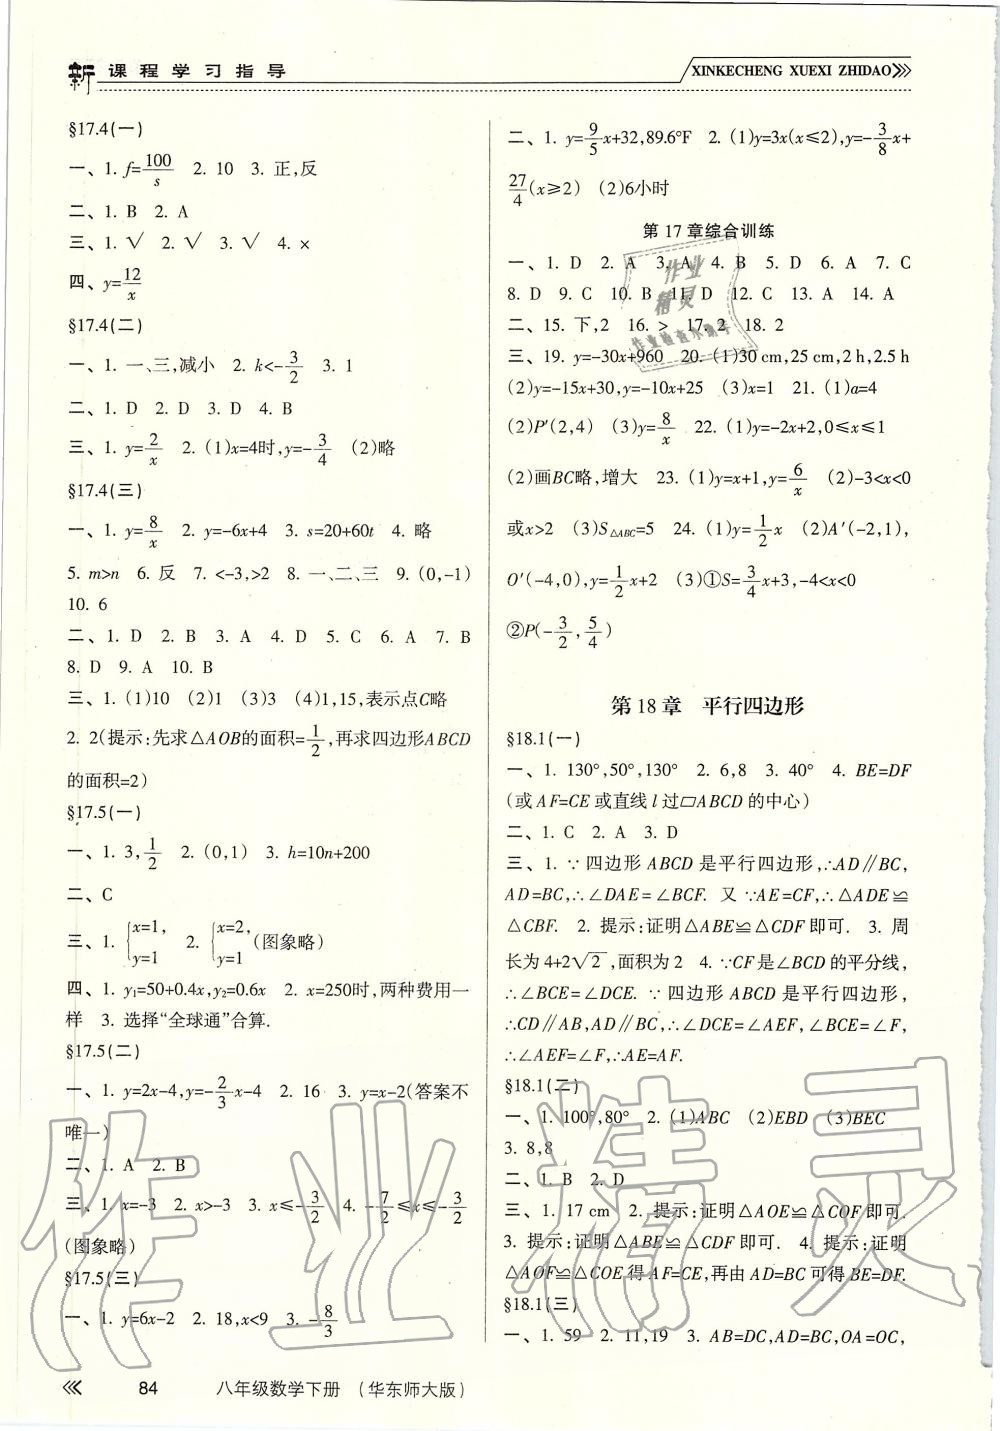 新课程学习指导
XINKECHENG XUEXI ZHIDAO
§17.4(一)
一、1. f=100/s 2. 10 3. 正,反
二、1. B 2. A
三、1. √ 2. √ 3. √ 4. ×
四、y=12/x
§17.4(二)
一、1. 一、三,减小 2. k<-3/2 3. 1
二、1. D 2. D 3. D 4. B
三、1. y=2/x 2. (1)x=4时,y=-3/4 (2)略
§17.4(三)
一、1. y=8/x 2. y=-6x+4 3. s=20+60t 4. 略
5. m>n 6. 反 7. <-3,>2 8. 一、二、三 9. (0,-1)
10. 6
二、1. D 2. B 3. A 4. D 5. C 6. A 7. B
8. D 9. A 10. B
三、1. (1)10 (2)1 (3)3 (4)1,15,表示点C略
2. 2(提示:先求△AOB的面积=1/2,再求四边形ABCD
的面积=2)
§17.5(一)
一、1. 3,1/2 2. (0,1) 3. h=10n+200
二、C
三、1. {x=1, y=1 2. {x=2, y=1 (图象略)
四、1. y₁=50+0.4x,y₂=0.6x 2. x=250时,两种费用一
样 3. 选择“全球通”合算.
§17.5(二)
一、1. y=2x-4,y=-2/3x-4 2. 16 3. y=x-2(答案不
唯一)
二、1. A 2. B
三、1. x=-3 2. x>-3 3. x≤-3/2 4. -7/2≤x≤-3/2
(图象略)
§17.5(三)
一、1. y=6x-2 2. 18,x<9 3. -8/3
二、1. y=9/5x+32,89.6°F 2. (1)y=3x(x≤2),y=-3/8x+
27/4(x≥2) (2)6小时
第17章综合训练
一、1. D 2. A 3. A 4. B 5. D 6. A 7. C
8. D 9. C 10. B 11. D 12. C 13. A 14. A
二、15. 下,2 16. > 17. 2 18. 2
三、19. y=-30x+960 20. (1)30 cm,25 cm,2 h,2.5 h
(2)y=-15x+30,y=-10x+25 (3)x=1 21. (1)a=4
(2)P′(2,4) (3)y=8/x 22. (1)y=-2x+2,0≤x≤1
(2)画BC略,增大 23. (1)y=x+1,y=6/x (2)-3<x<0
或x>2 (3)S△ABC=5 24. (1)y=1/2x (2)A′(-2,1),
O′(-4,0),y=1/2x+2 (3)①S=3/4x+3,-4<x<0
②P(-3/2,5/4)
第18章 平行四边形
§18.1(一)
一、1. 130°,50°,130° 2. 6,8 3. 40° 4. BE=DF
(或AF=CE或直线l过▱ABCD的中心)
二、1. C 2. A 3. D
三、1. ∵四边形ABCD是平行四边形,∴AD∥BC,
AD=BC,∴∠DAE=∠BCF. 又∵AE=CF,∴△ADE≌
△CBF. 2. 提示:证明△ABE≌△CDF即可. 3. 周
长为4+2√2,面积为2 4. ∵CF是∠BCD的平分线,
∴∠BCE=∠DCE. ∵四边形ABCD是平行四边形,
∴CD∥AB,AD∥BC,∴∠DCE=∠AEF,∠BCE=∠F,
∴∠AEF=∠F,∴AE=AF.
§18.1(二)
一、1. 100°,80° 2. (1)ABC (2)EBD (3)BEC
3. 8,8
二、1. B 2. D
三、1. 17 cm 2. 提示:证明△AOE≌△COF即可.
3. 提示:证明△ABE≌△CDF即可. 4. 提示:证明
△AOF≌△COE得AF=CE,再由AD=BC可得BE=DF.
§18.1(三)
一、1. 59 2. 11,19 3. AB=DC,AD=BC,OA=OC,
84 八年级数学下册 (华东师大版)
作业精灵
作业
精灵
作业检查小助手